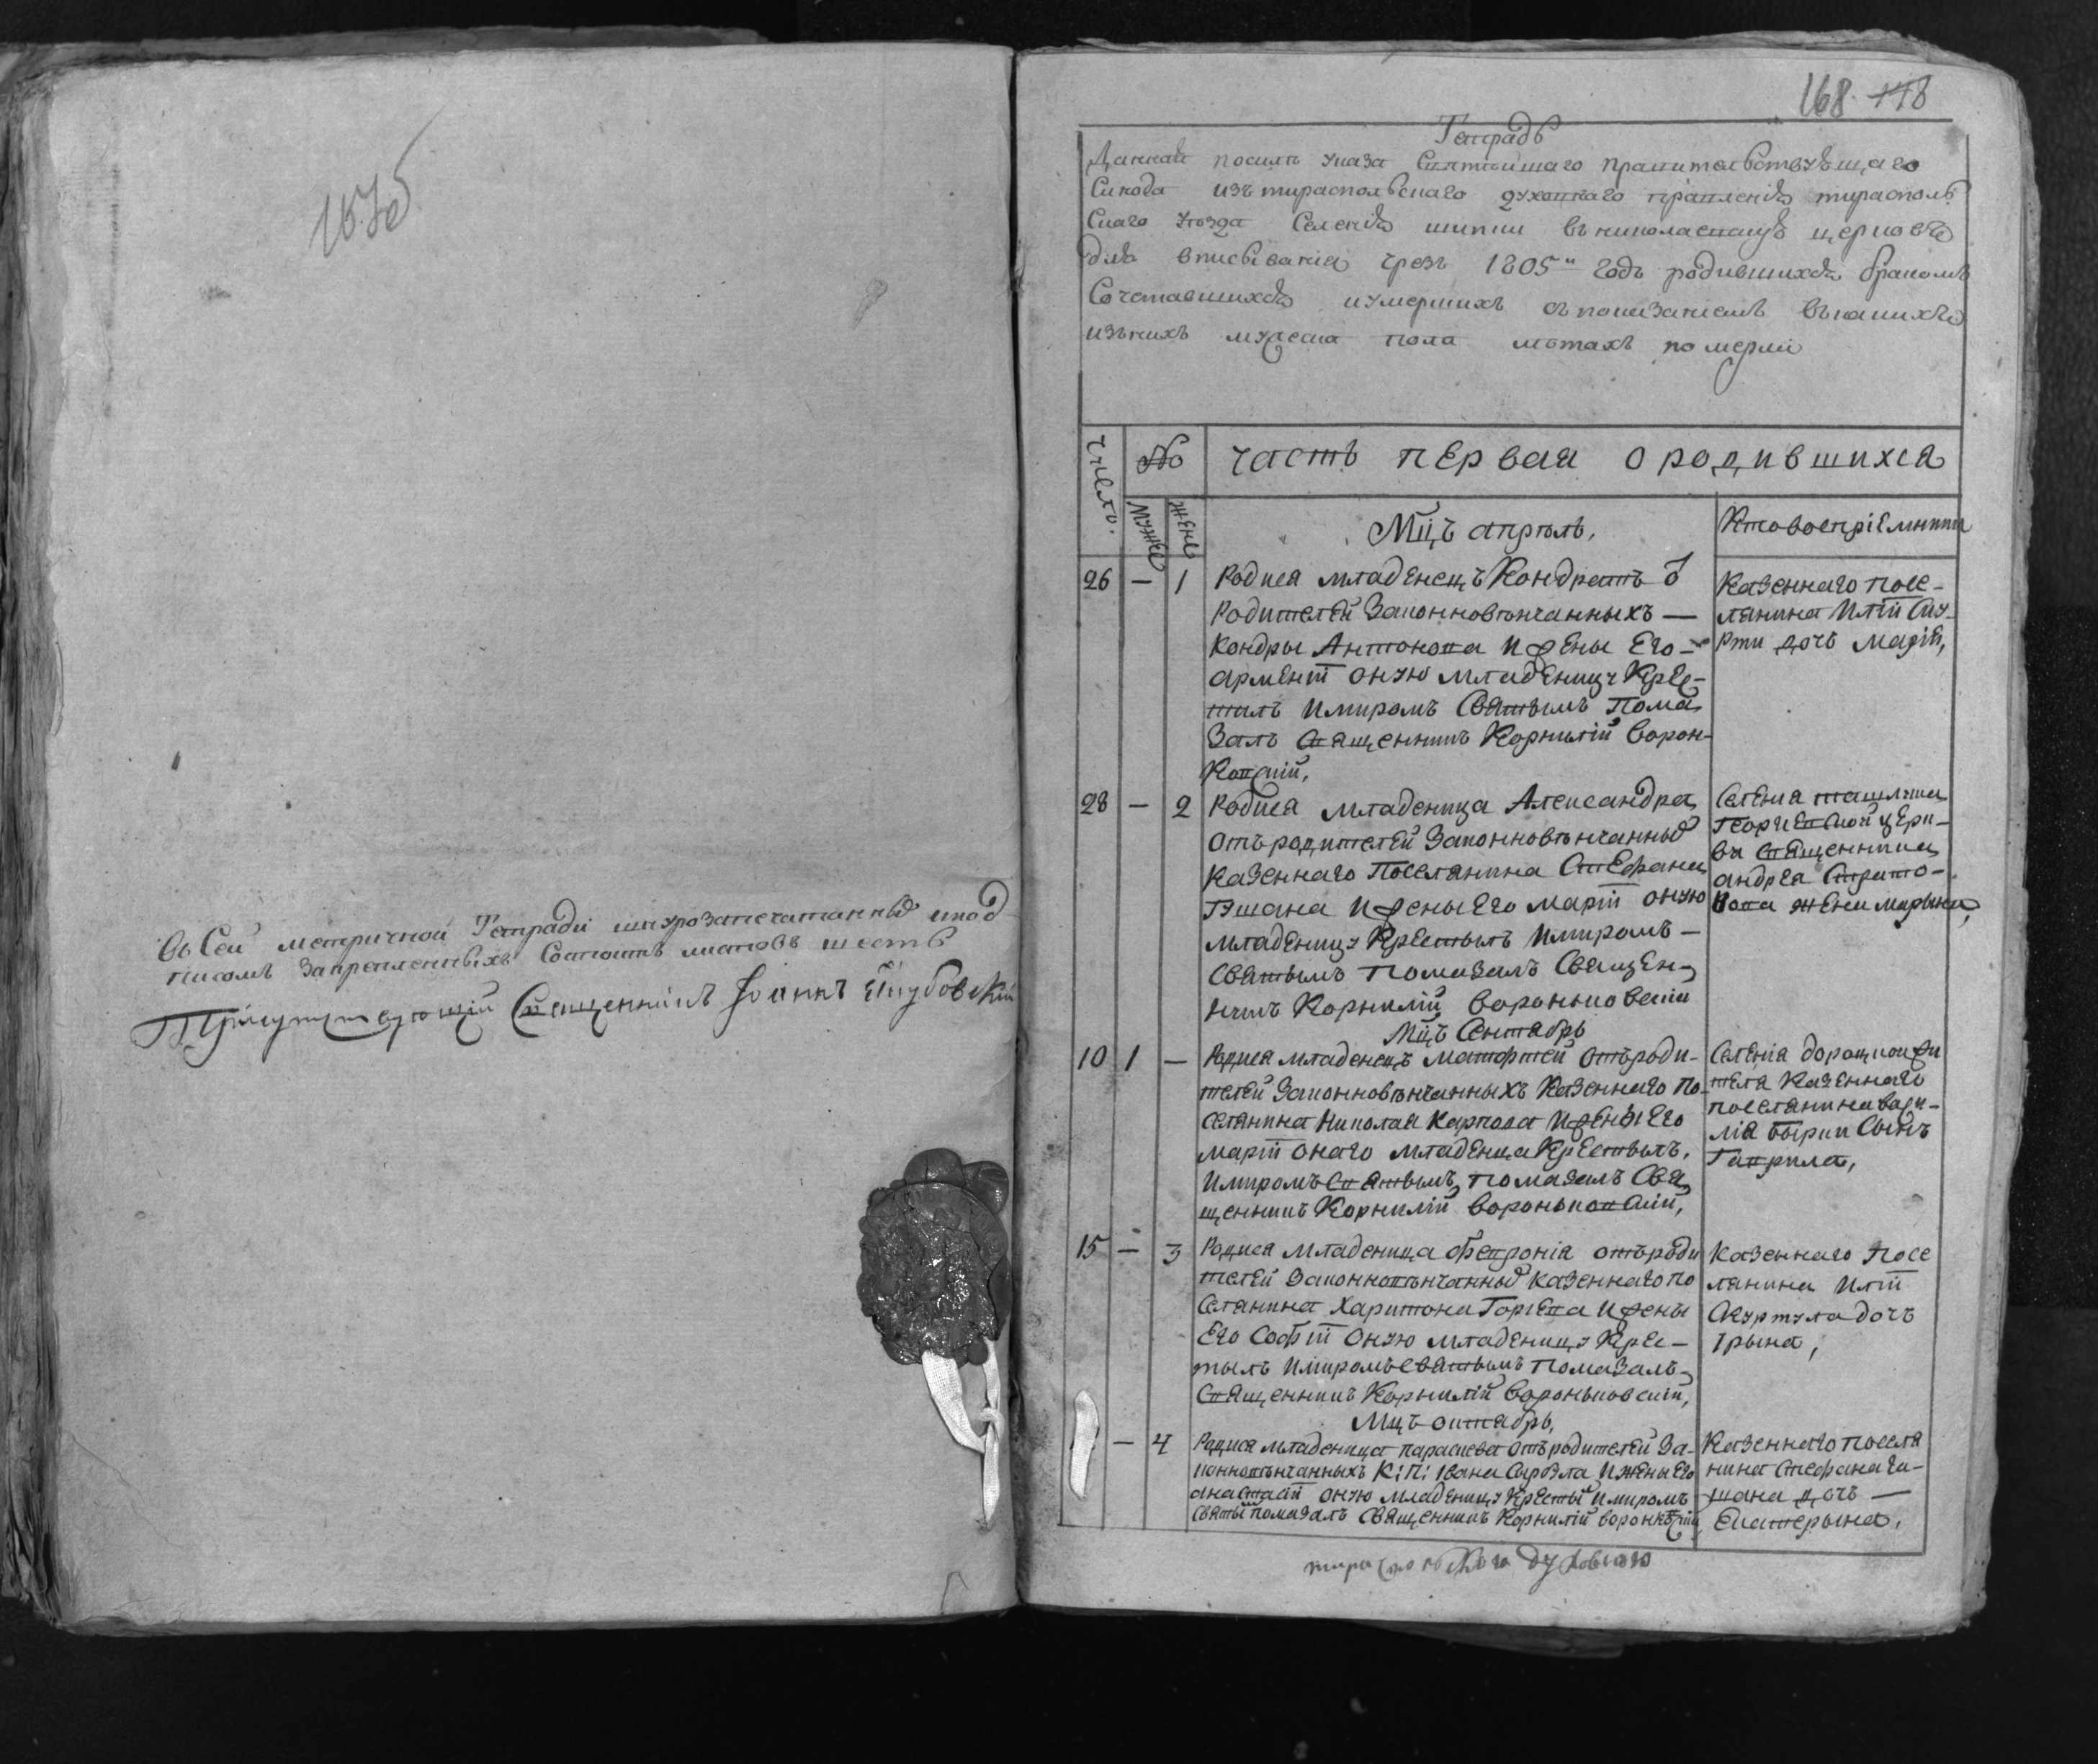 въ Сей метричной Тетради шнурозапечатанной и под
писомъ Запрепленныхъ Состоитъ листовъ шесть
Присутствующій Священникъ Іоаннъ
168. 178
Тетрадь
Данная посилѣ указа Святѣйшаго правительствующаго
Синода изъ тираспольскаго духовнаго правленія тирасполь
скаго уѣзда Селенія шипки въ николаевскую церковь
для вписыванія чрезъ 1805й годъ родившихся бракомъ
Сочетавшихся и умершихъ съ показаніемъ въ какихъ
изъ нихъ мужеска пола лѣтахъ померли
число.
№
часть первая о родившихся
мужес
жене
Мцъ апрѣль,
Кто восприемники
26 — 1
Родися младенецъ Кондратъ
Родителей Законновѣнчанныхъ —
Кондры Антонова и жены Его —
оную младеницу Крес-
тилъ и миромъ Святымъ Пома
Залъ Священникъ Корнилій Ворон-
ковскій,
Казеннаго посе-
лянина Иліи Ску-
рти дочь Марія,
28 — 2
Родися младеница Александра
отъ родителей Законновѣнчанны
Казеннаго Поселянина Стефана
Гушана и жены Его Маріи оную
младеницу Крестылъ и миромъ —
Святымъ Помазалъ Священ-
никъ Корнилій Вороньковскій
Селения ташлика
Георгіевской церк-
ви Священника
андрея
жена Марына,
Мцъ Сентабрь
10 1 —
Родися младенецъ Матфтей отъ роди-
телей Законновѣнчанныхъ Казеннаго по-
селянина Николая Карпова и жены Его
Маріи онаго младенца Крестылъ,
и миромъ Святымъ помазалъ Свя
щенникъ Корнилій Вороньковскій,
Селенія дороцкои жи
теля Казеннаго
поселянина васи-
лія Сынъ
Гаврила,
15 — 3
Родися младеница Февронія отъ роди
телей Законновѣнчанны казеннаго по
Селянина Харитона Горгева и жены
Его Софіи оную младеницу Крес-
тылъ и миромъ святымъ помазалъ
Священникъ Корнилій Вороньковскій,
Казеннаго Посе
лянина Иліи
Скуртула дочь
Ірына,
Мцъ октабрь,
— 4
Родися младеница параскева отъ родителей За-
конновѣнчанныхъ К: П: Івана и жены Его
анастасіи оную младеницу Кресты и миромъ
святы помазалъ Священникъ Корнилій
Казеннаго поселя
нина Стефана Гу-
шана дочь —
Екатерына,
тираспольскаго духовнаго